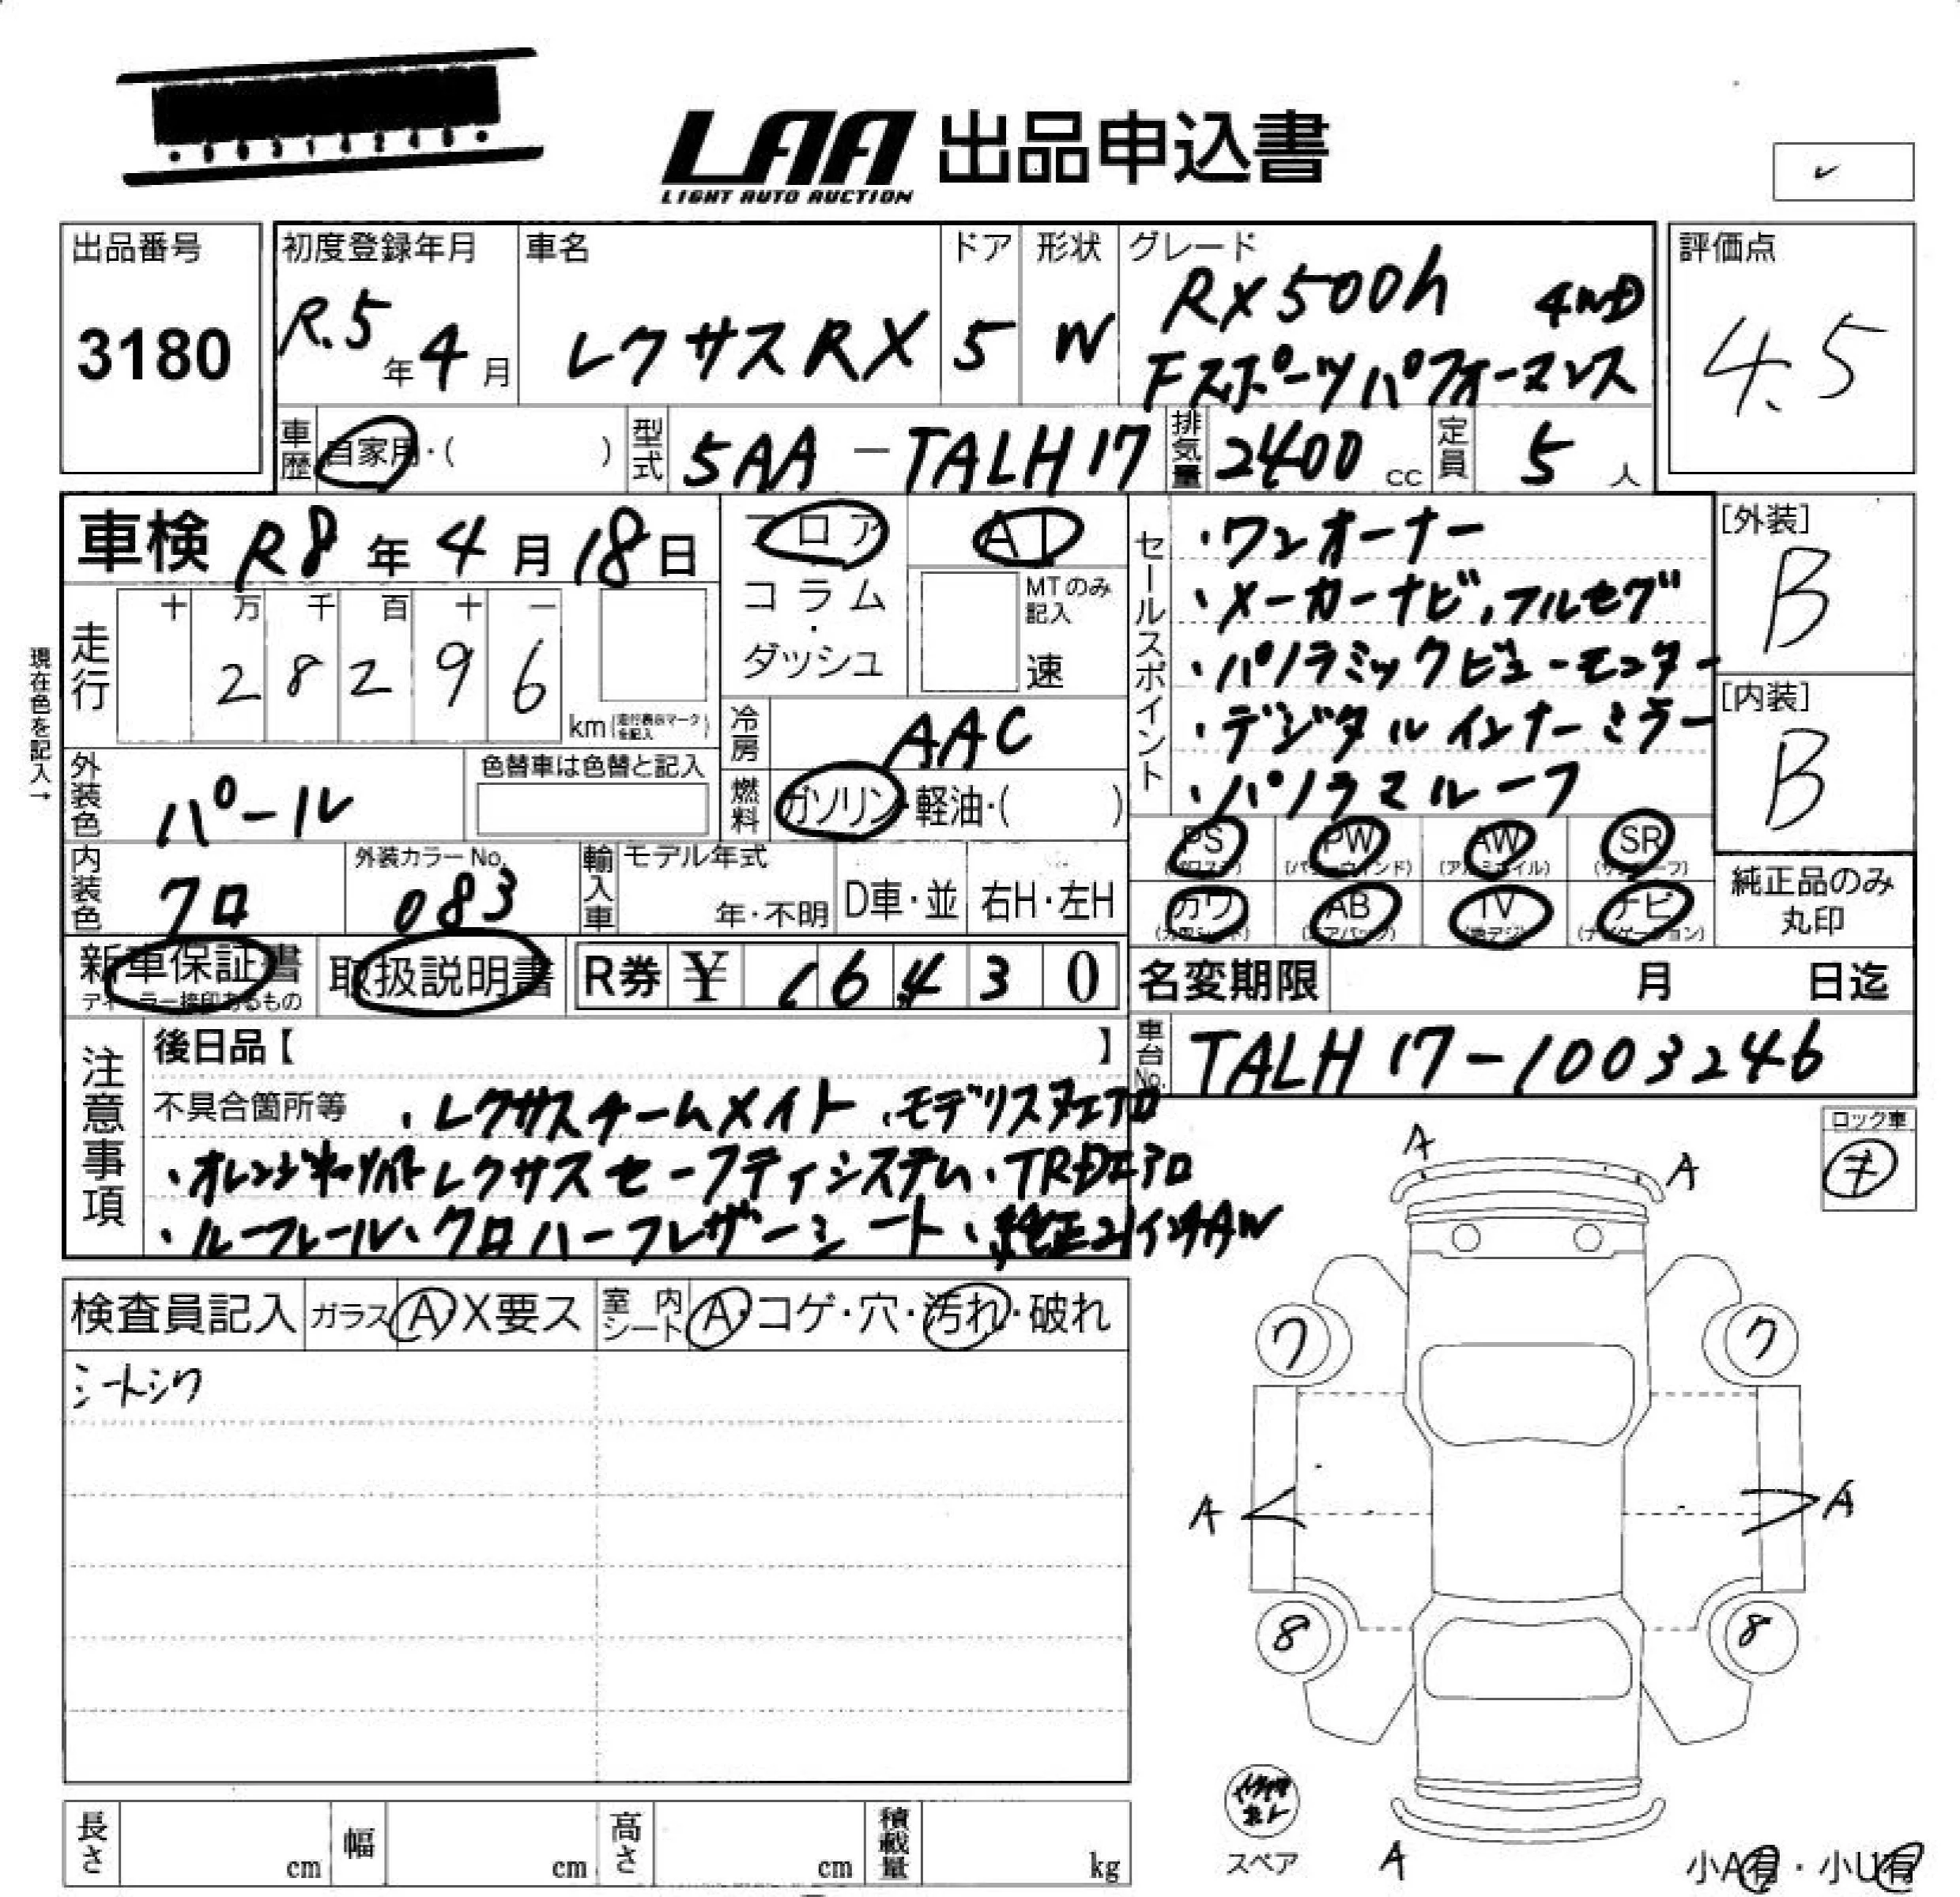 LAA 出品申込書
LIGHT AUTO AUCTION
出品番号
3180
初度登録年月
R.5年4月
車名
レクサスRX
ドア
5
形状
W
グレード
RX500h 4WD
Fスポーツパフォーマンス
評価点
4.5
車歴 自家用・( )
型式 5AA-TALH17
排気量 2400 cc
定員 5人
車検 R8年4月18日
フロア
コラム・
ダッシュ
AT
MTのみ記入
速
走行
十 万 千 百 十 一
2 8 2 9 6
km(走行表示マークを記入)
現在色を記入→
冷房 AAC
燃料 ガソリン・軽油・( )
外装色 パール
色替車は色替と記入
内装色 クロ
外装カラーNo.
083
輸入車
モデル年式
年・不明
D車・並
右H・左H
セールスポイント
・ワンオーナー
・メーカーナビ,フルセグ
・パノラミックビューモニター
・デジタルインナーミラー
・パノラマルーフ
[外装]
B
[内装]
B
PS (パワステ)
PW (パワーウィンド)
AW (アルミホイル)
SR (サンルーフ)
カワ (カワシート)
AB (エアバック)
TV (地デジ)
ナビ (ナビゲーション)
純正品のみ
丸印
新車保証書
ディーラー捺印あるもの
取扱説明書
R券 ¥ 16,430
名変期限 月 日迄
車台No. TALH17-1003246
注意事項
後日品【 】
不具合箇所等 ・レクサスチームメイト ・モデリスタエアロ
・オレンジキャリパー レクサスセーフティシステム・TRDエアロ
・ルーフレール・クロハーフレザーシート・純正21インチAW
ロック車
検査員記入
ガラス A X要ス
室内シート A・コゲ・穴・汚れ・破れ
シートシワ
A
A
7
7
A
A
8
8
スペア
A
小A有・小U有
長さ cm
幅 cm
高さ cm
積載量 kg